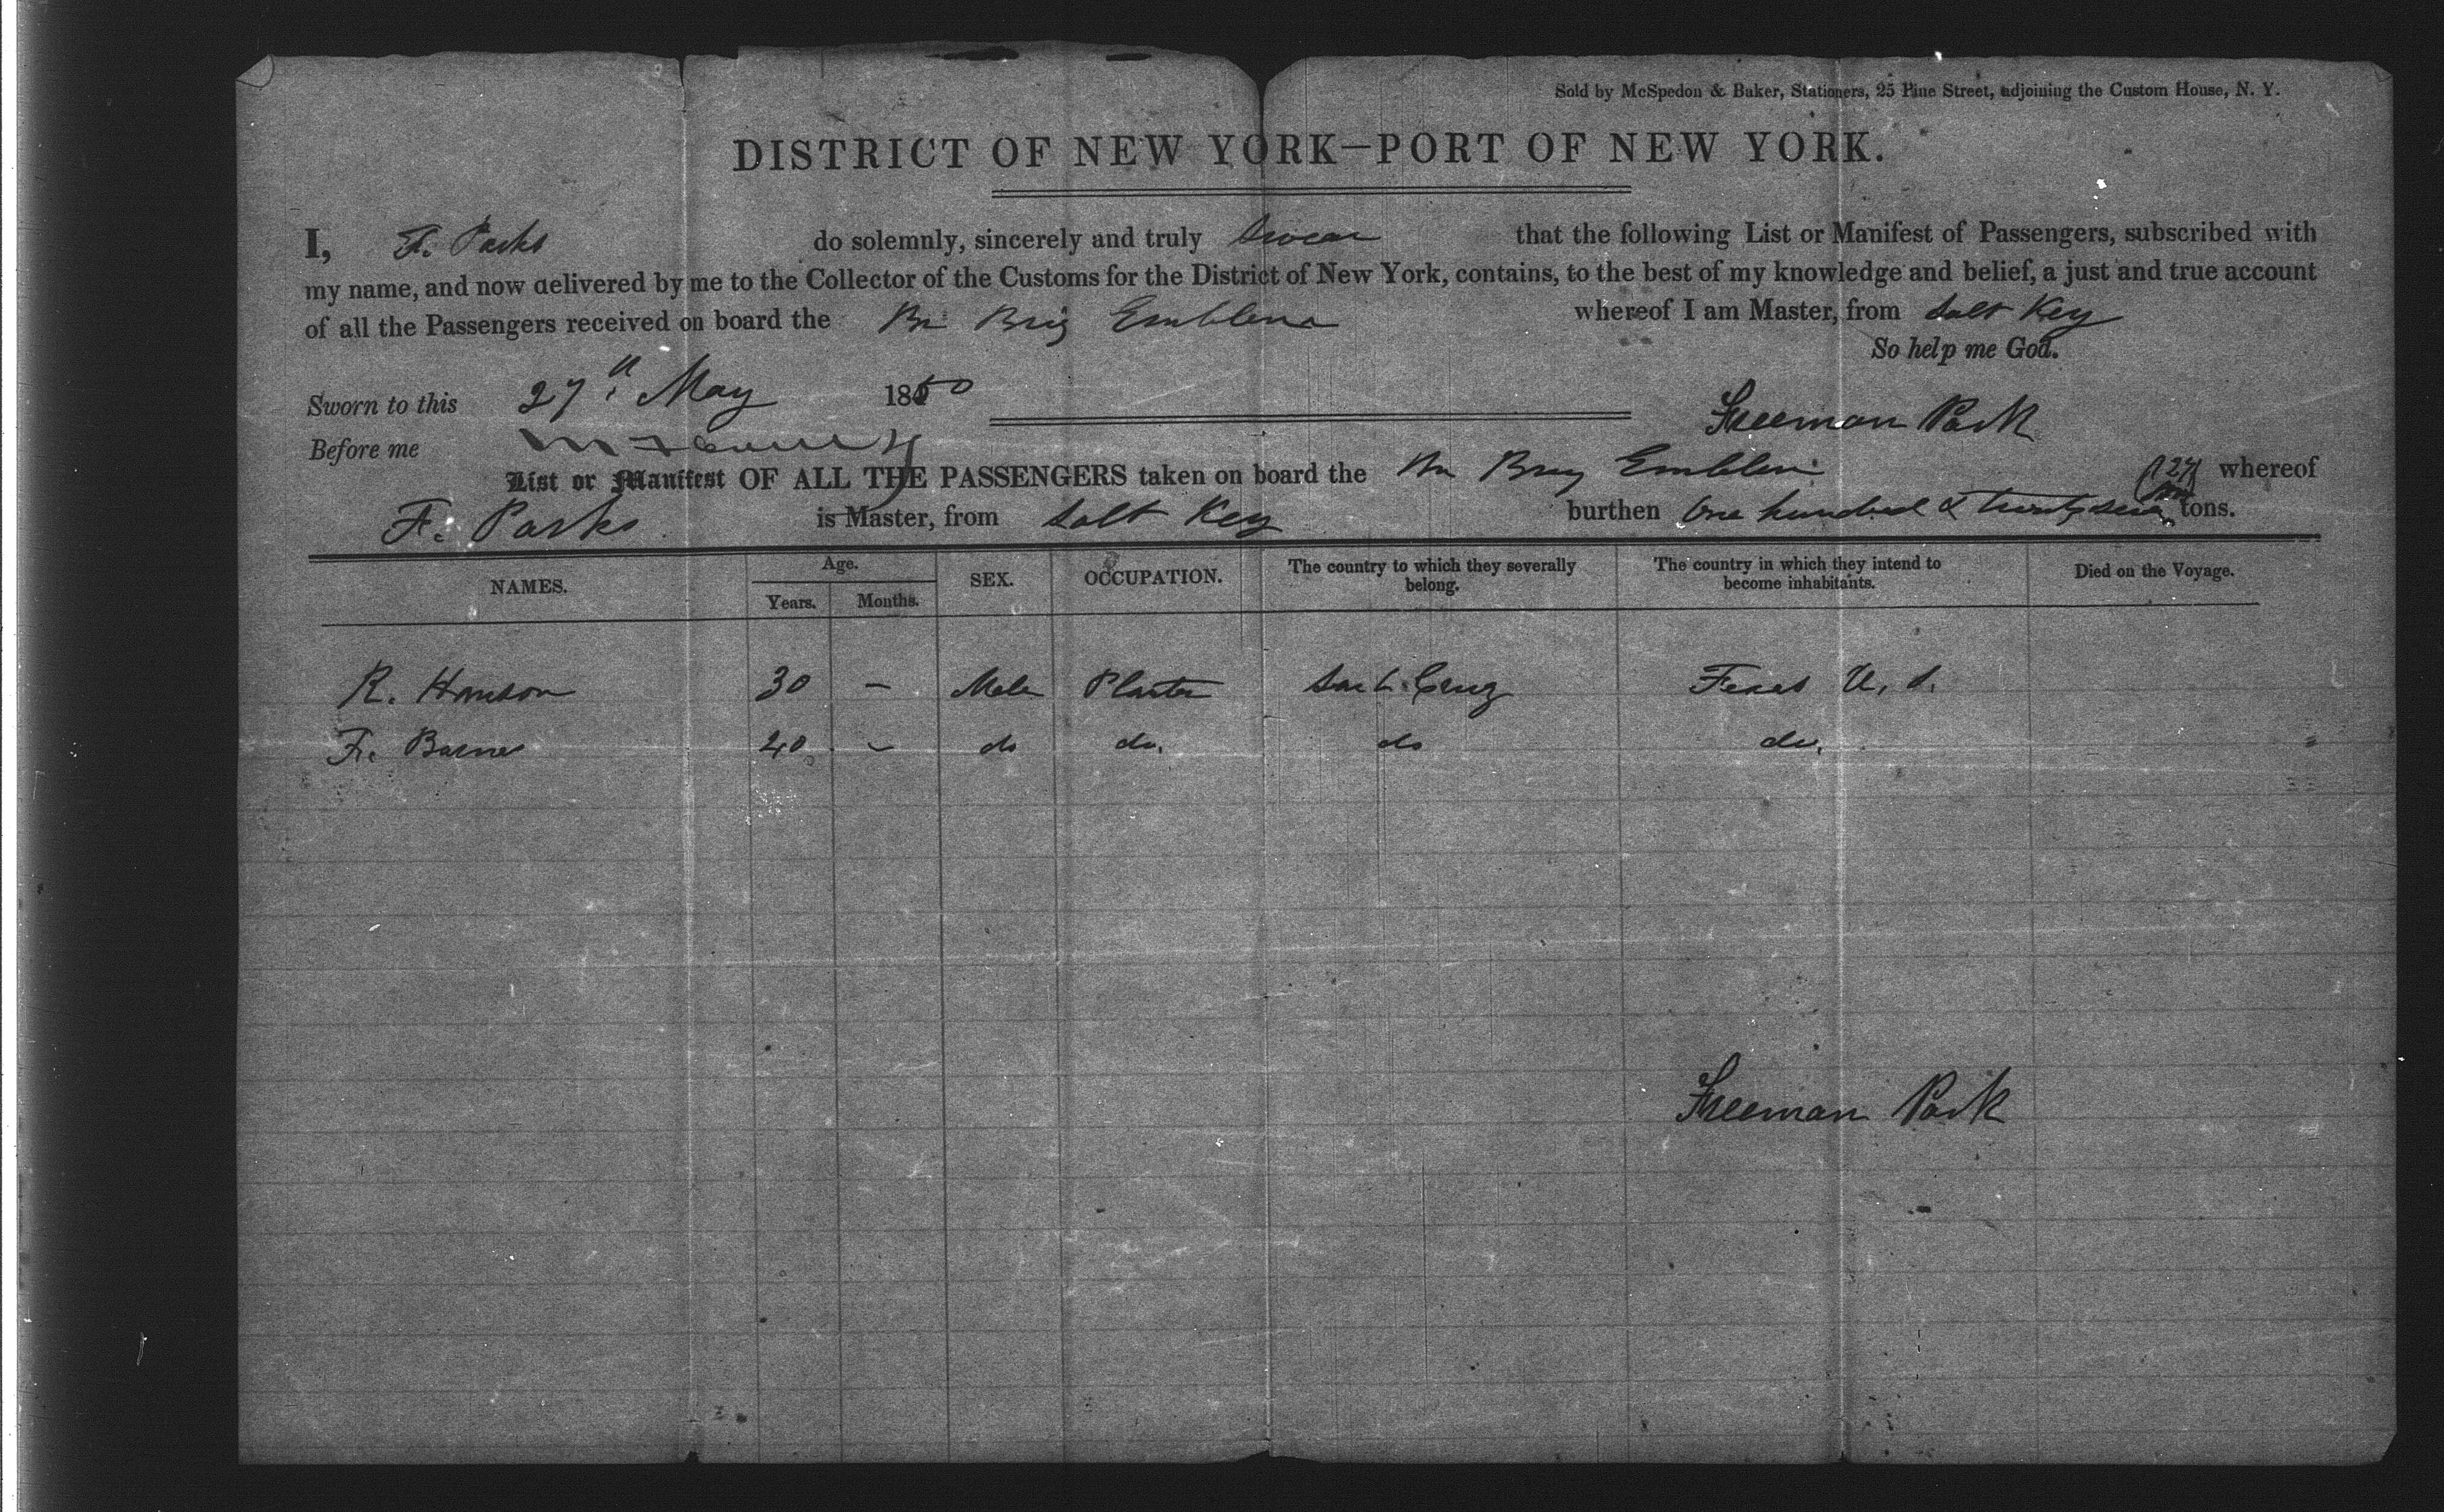 Sold by McSpedon & Baker, Stationers, 25 Pine Street, adjoining the Custom House, N. Y.
DISTRICT OF NEW YORK—PORT OF NEW YORK.
I, F. Parks do solemnly, sincerely and truly swear that the following List or Manifest of Passengers, subscribed with
my name, and now delivered by me to the Collector of the Customs for the District of New York, contains, to the best of my knowledge and belief, a just and true account
of all the Passengers received on board the Br Brig Emblem whereof I am Master, from Salt Key
So help me God.
Sworn to this 27th May 1850
Freeman Park
Before me
List or Manifest OF ALL THE PASSENGERS taken on board the Br Brig Emblem 127 whereof
F. Parks is Master, from Salt Key burthen One hundred & twenty seven tons.
NAMES. Age. Years. Months. SEX. OCCUPATION. The country to which they severally belong. The country in which they intend to become inhabitants. Died on the Voyage.
R. Hanson 30 – Male Planter Cruz Texas U. S.
F. Barnes 40 – do do. do do.
Freeman Park